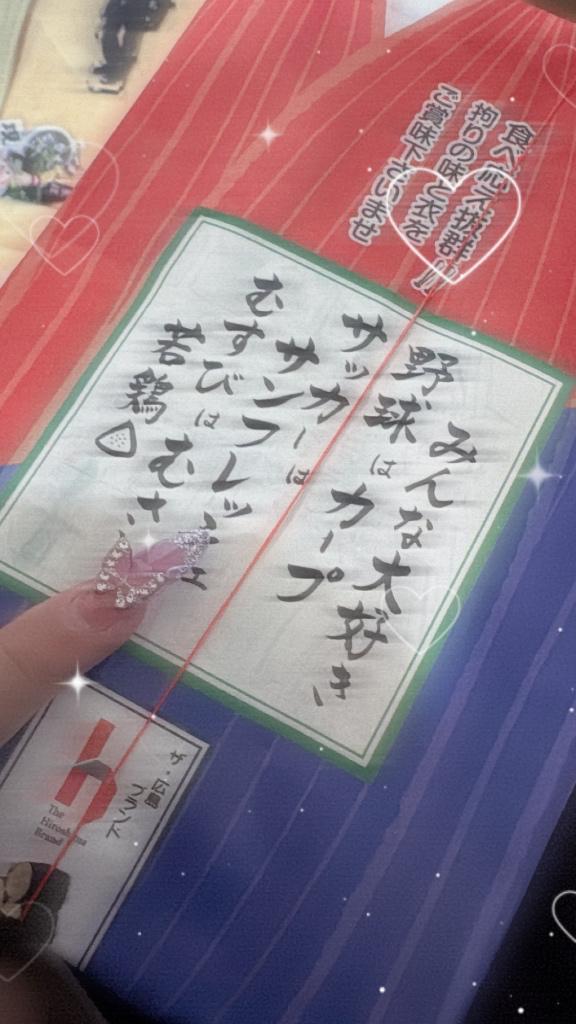 食べ応え抜群!!
拘りの味と衣を
ご賞味下さいませ
みんな大好き
野球はカープ
サッカーは
サンフレッチェ
むすびはむさし
若鶏
ザ・広島
ブランド
The
Hiroshima
Brand